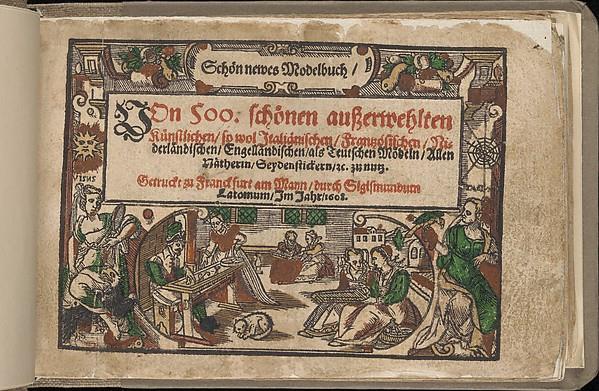 Schön newes Modelbuch /
Von 500. schönen außerwehlten
Künstlichen / so wol Italiänischen / Frantzösischen / Ni-
derländischen / Engelländischen / als Teutschen Mödeln / Allen
Näherin / Seydenstickern / ꝛc. zu nutz.
Getruckt zu Franckfurt am Mayn / durch Sigismundum
Latomum / Im Jahr / 1608.
VISVS